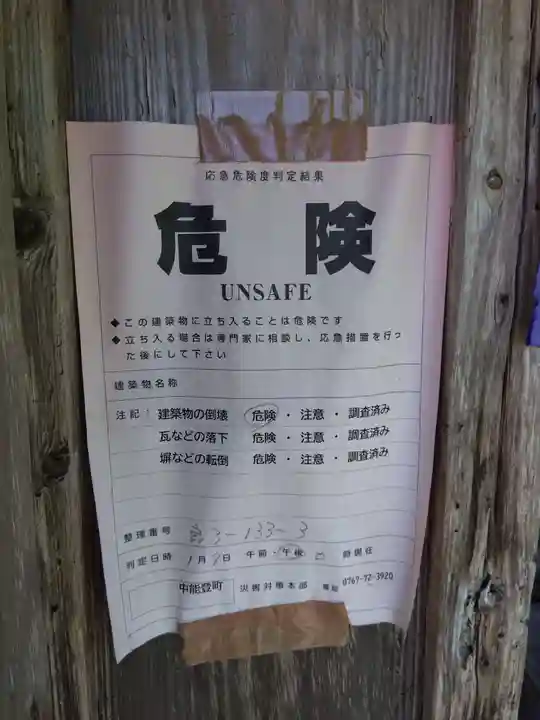 応急危険度判定結果
危険
UNSAFE
◆この建築物に立ち入ることは危険です
◆立ち入る場合は専門家に相談し、応急措置を行っ
た後にして下さい
建築物名称
注記： 建築物の倒壊 危険・注意・調査済み
瓦などの落下 危険・注意・調査済み
塀などの転倒 危険・注意・調査済み
整理番号 3-133-3
判定日時 1月 日 午前・午後 時現在
中能登町 災害対策本部 電話 0767-72-3920